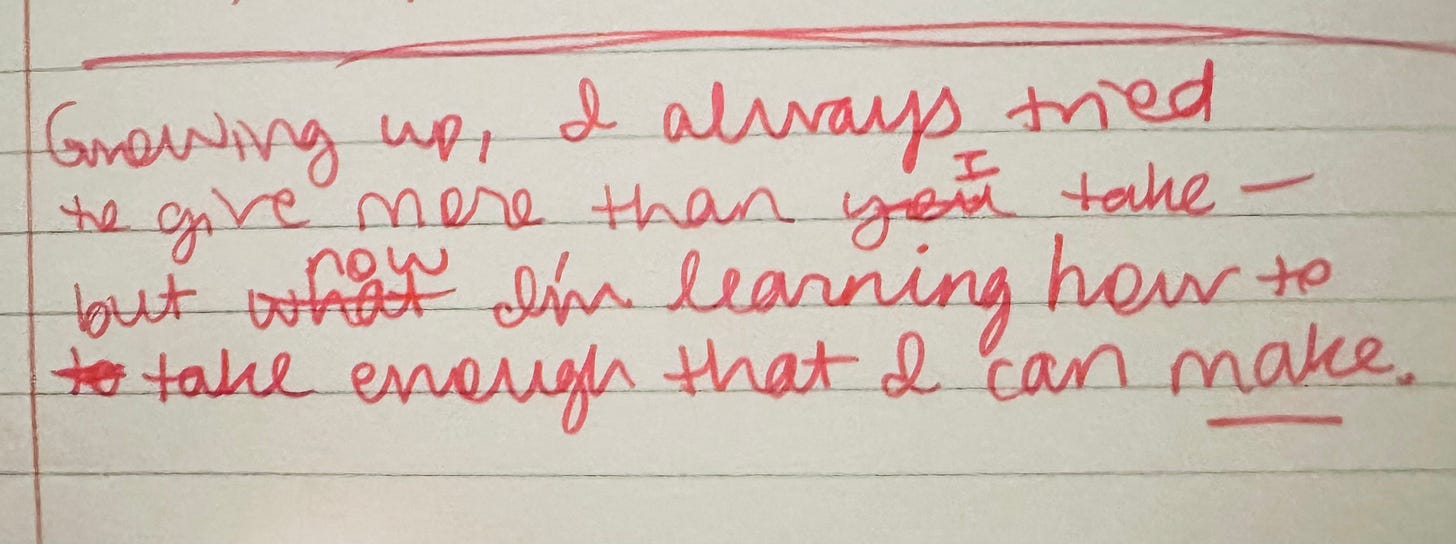 Growing up, I always tried
to give more than I take —
but now I'm learning how to
take enough that I can make.